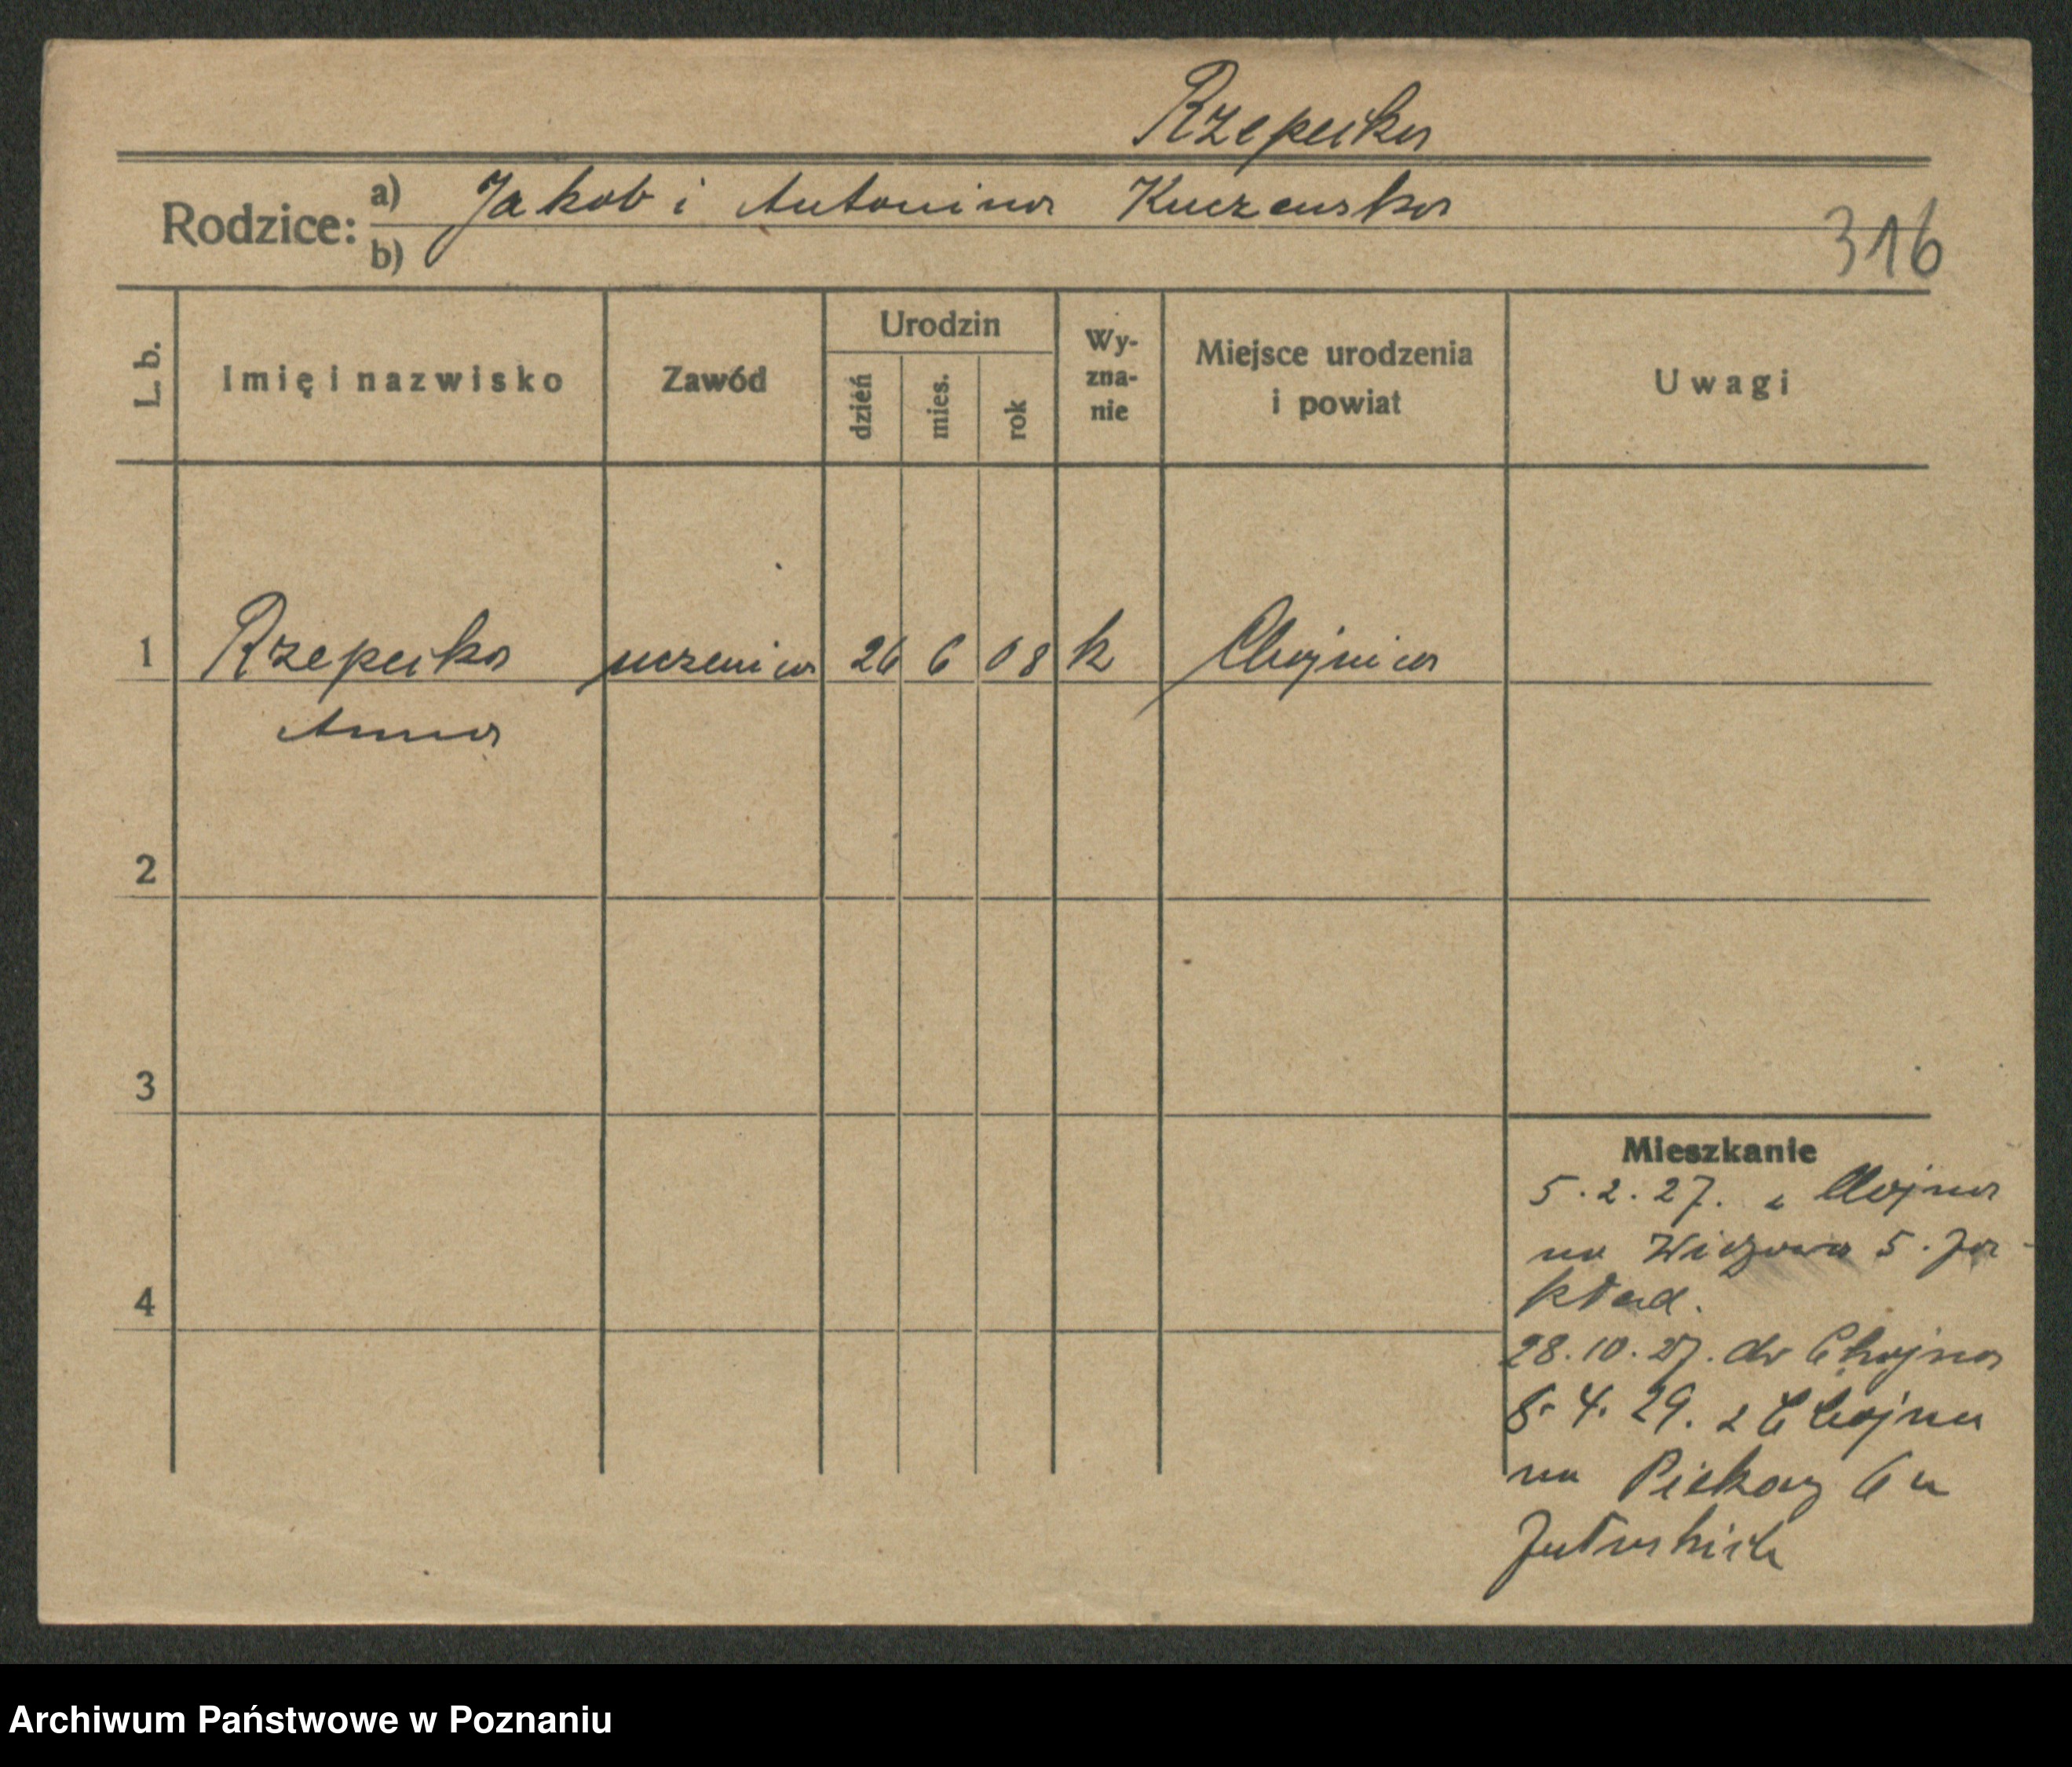 Rzepecka
Rodzice: a) Jakob i Antonina Kuczenska
b)
316
L. b.
Imię i nazwisko
Zawód
Urodzin
dzień
mies.
rok
Wy-
zna-
nie
Miejsce urodzenia
i powiat
Uwagi
1 Rzepecka uczenica 26 6 08 k Chojnica
Anna
2
3
4
Mieszkanie
5.2.27. z Chojna
na 5.
28.10.27. do Chojna
8.4.29. z Chojna
na Piekary 6 u
Archiwum Państwowe w Poznaniu